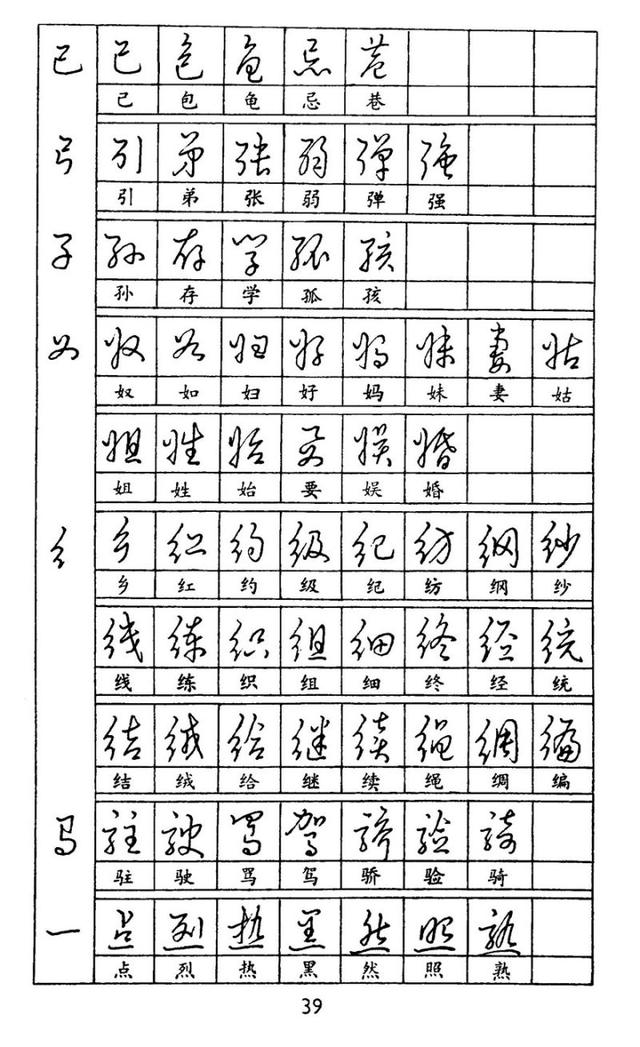 已 已 包 龟 忌 巷
已 包 龟 忌 巷
弓 引 弟 张 弱 弹 强
引 弟 张 弱 弹 强
子 孙 存 学 孤 孩
孙 存 学 孤 孩
女 奴 如 妇 好 妈 妹 妻 姑
奴 如 妇 好 妈 妹 妻 姑
姐 姓 始 要 娱 婚
姐 姓 始 要 娱 婚
纟 乡 红 约 级 纪 纺 纲 纱
乡 红 约 级 纪 纺 纲 纱
线 练 织 组 细 终 经 统
线 练 织 组 细 终 经 统
结 绒 给 继 续 绳 绸 编
结 绒 给 继 续 绳 绸 编
马 驻 驶 骂 驾 骄 验 骑
驻 驶 骂 驾 骄 验 骑
一 点 烈 热 黑 然 照 熟
点 烈 热 黑 然 照 熟
39